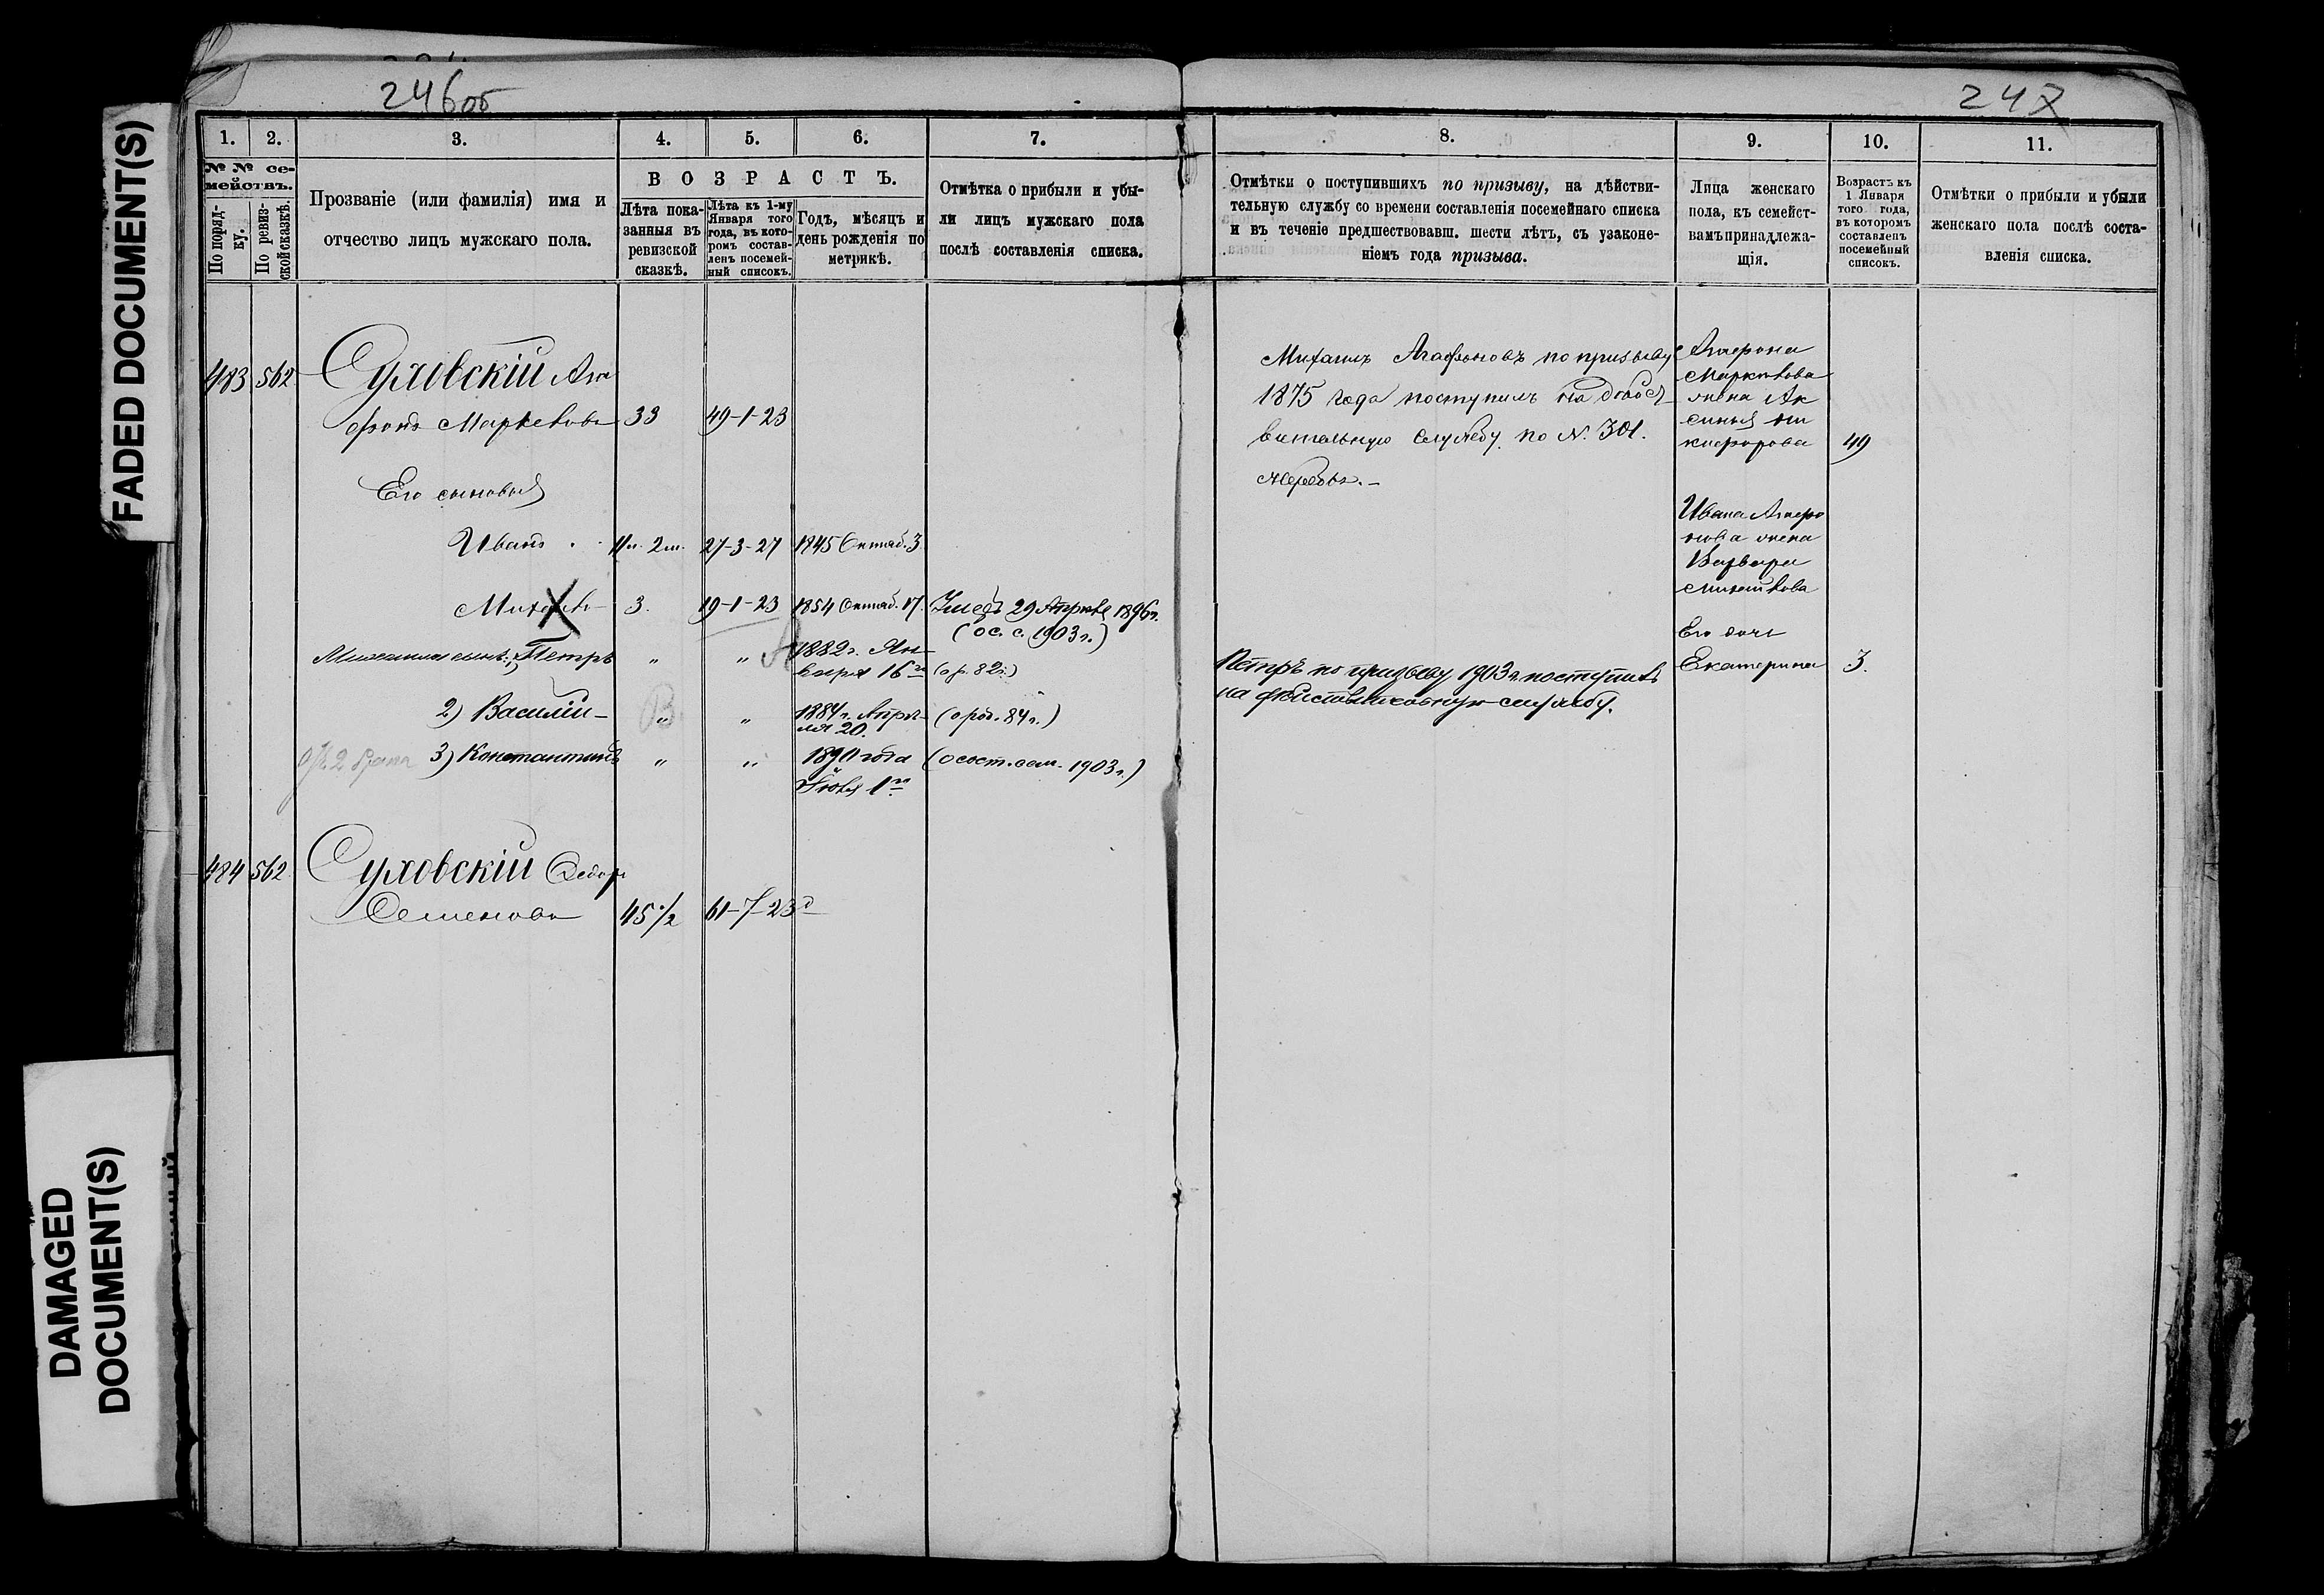 FADED DOCUMENT(S)
DAMAGED
DOCUMENT(S)
246об
1.
2.
3.
4.
5.
6.
7.
№ № се-
мействъ.
По поряд-
ку.
По ревиз-
ской сказкѣ.
Прозваніе (или фамилія) имя и
отчество лицъ мужскаго пола.
ВОЗРАСТЪ.
Лѣта пока-
занныя въ
ревизской
сказкѣ.
Лѣта къ 1-му
Января того
года, въ кото-
ромъ состав-
ленъ посемей-
ный списокъ.
Годъ, мѣсяцъ и
день рожденія по
метрикѣ.
Отмѣтка о прибыли и убы-
ли лицъ мужскаго пола
послѣ составленія списка.
483 562 Суховскій Ага
фонъ Маркевовъ 33 49-1-23
Его сыновья
Иванъ 27-3-27 1845 Октяб. 3
Михаилъ 3. 19-1-23 1854 Октяб. 17. 29 Апрѣля 1896г.
(ос. с. 1903 г.)
1) Петръ " " 1882 г. Ян-
варя 16го (ор. 82г.)
2) Василій " " 1884 г. Апрѣ-
ля 20. (о род. 84 г.)
2 брата 3) Константинъ " " 1890 года (о сост. сем. 1903 г.)
1го
484 562 Суховскій Федоръ
Семеновъ 45 1/2 61-7-23
247
8.
9.
10.
11.
Отмѣтки о поступившихъ по призыву, на дѣйстви-
тельную службу со времени составленія посемейнаго списка
и въ теченіе предшествовавш. шести лѣтъ, съ узаконе-
ніемъ года призыва.
Лица женскаго
пола, къ семейст-
вамъ принадлежа-
щія.
Возрастъ къ
1 Января
того года,
въ которомъ
составленъ
посемейный
списокъ.
Отмѣтки о прибыли и убыли
женскаго пола послѣ соста-
вленія списка.
Михаилъ Агафоновъ по призыву
1875 года поступилъ на дѣйст
вительную службу по № 301.
жеребью.-
Агафона
Маркевова
жена Ак
синья Ни
кифорова 49
Ивана Агафо
нова жена
Варвара
Его дочь
Екатерина 3.
Петръ по призыву 1903 г. поступилъ
на дѣйствительную службу.